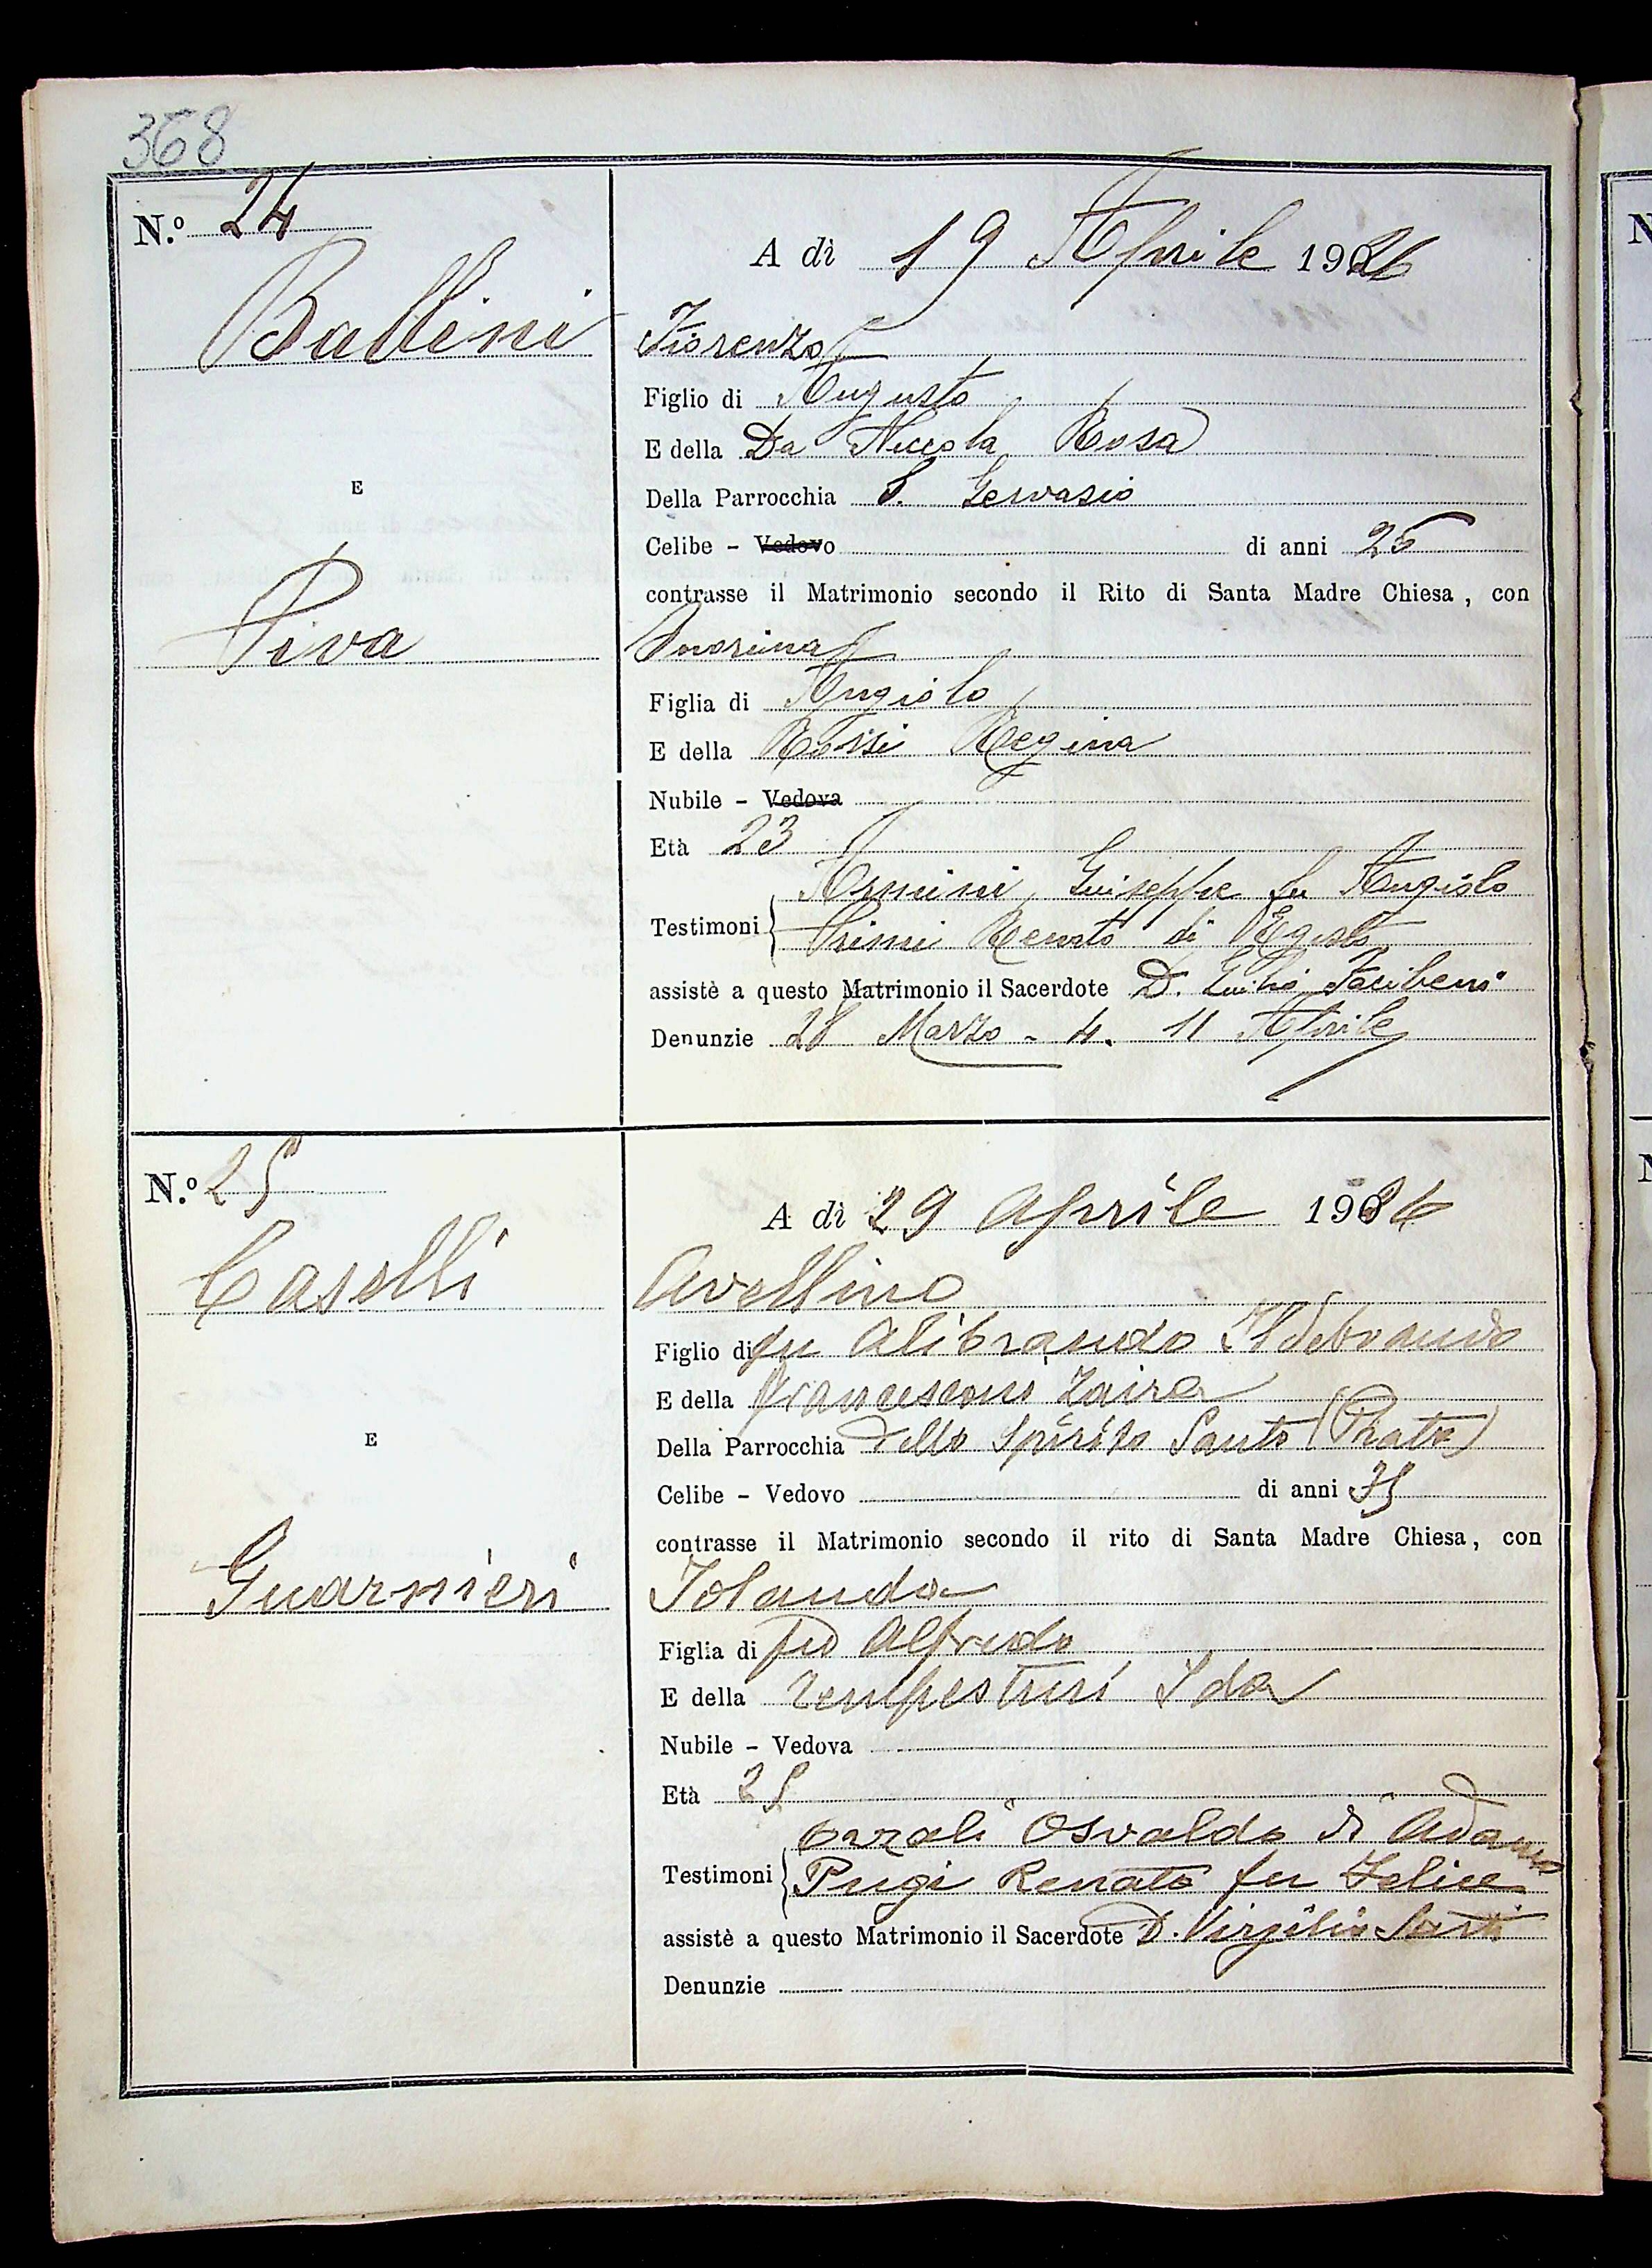 368
N.º 24
A dì 19 Aprile 1926
Ballini
Fiorenzo
Figlio di Augusto
E della Da Niccola Rosa
Della Parrocchia S. Gervasio
E
Celibe - Vedovo di anni 26
contrasse il Matrimonio secondo il Rito di Santa Madre Chiesa, con
Piva
Onorina
Figlia di Angiolo
E della Rossi Regina
Nubile - Vedova
Età 23
Armini Giuseppe fu Angiolo
Testimoni
Primi Renato di Egisto
assistè a questo Matrimonio il Sacerdote D. Giulio Facibeni
Denunzie 28 Marzo - 4. 11 Aprile
N.º 25
A dì 29 Aprile 1926
Caselli
Avellino
Figlio di fu Alibrando Ildebrando
E della Francesconi Zaira
Della Parrocchia dello Spirito Santo (Prato)
E
Celibe - Vedovo di anni 35
contrasse il Matrimonio secondo il rito di Santa Madre Chiesa, con
Guarnieri
Iolanda
Figlia di fu Alfredo
E della Tempestini Ida
Nubile - Vedova
Età 25
Osvaldo di Adamo
Testimoni
Pugi Renato fu Felice
assistè a questo Matrimonio il Sacerdote D. Virgilio
Denunzie
N